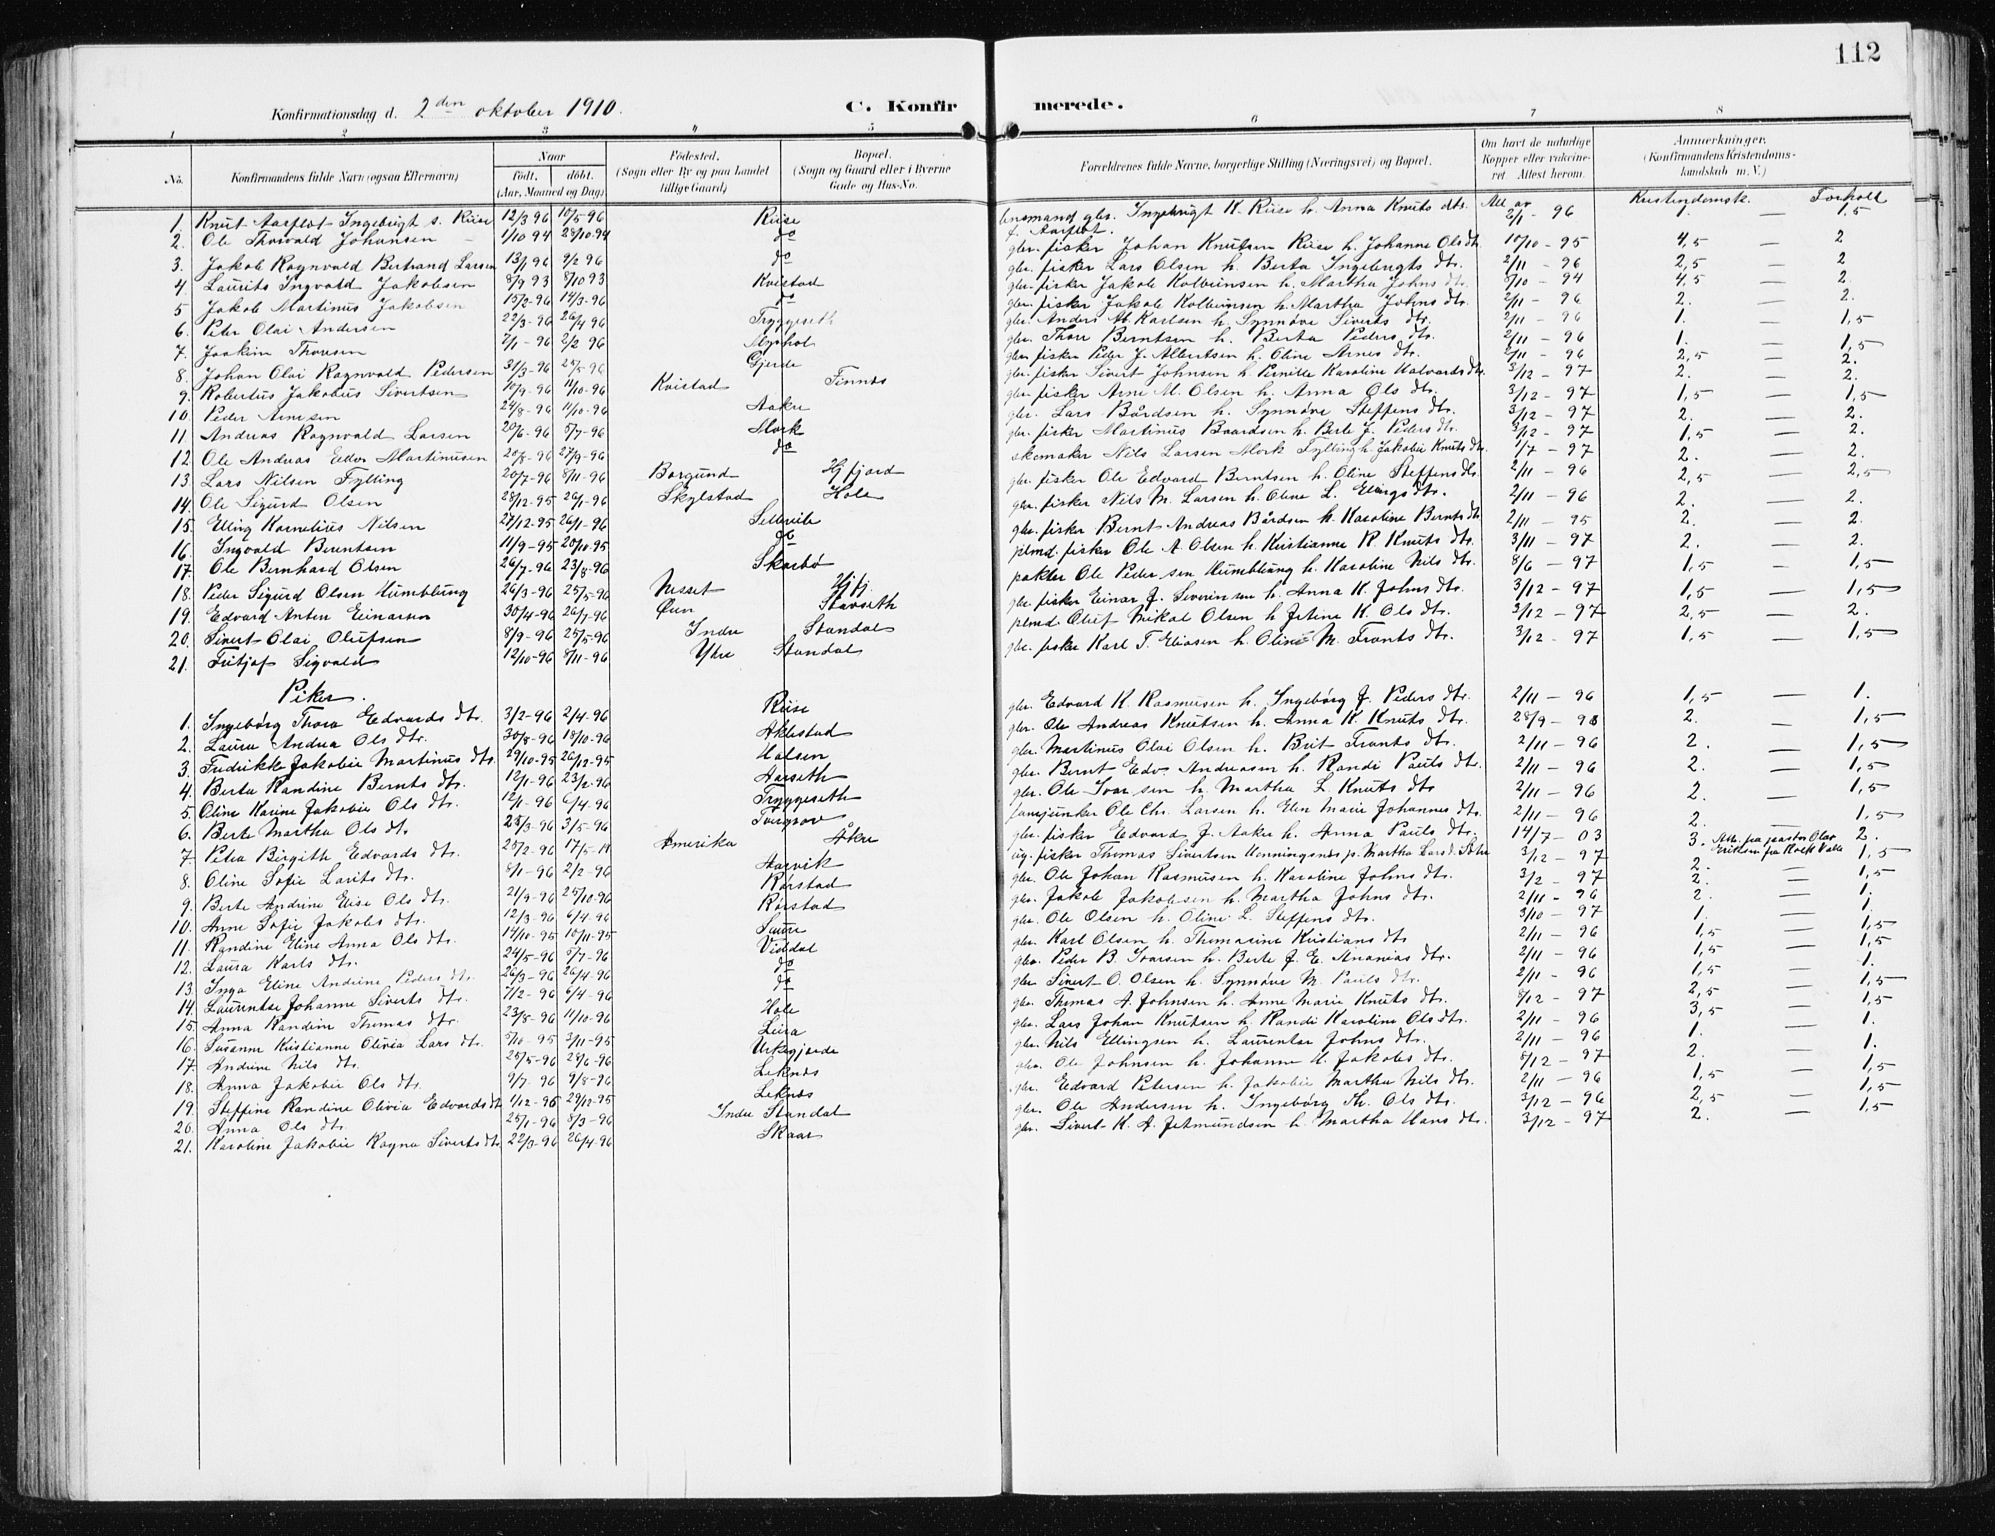 112
Konfirmationsdag d. 2den oktober 1910. C. Konfirmerede.
1 2 3 4 5 6 7 8
No. Konfirmandens fulde Navn (ogsaa Efternavn) Naar født, døbt. (Aar, Maaned og Dag) Fødested. (Sogn eller By og paa Landet tillige Gaard) Bopæl. (Sogn og Gaard eller i Byerne Gade og Hus-No. Forældrenes fulde Navne, borgerlige Stilling (Næringsvei) og Bopæl. Om havt de naturlige Kopper eller vakcineret. Attest herom. Anmærkninger. (Konfirmandens Kristendomskundskab m. V.)
Kristendomsk. Forhold
1. Knut Aarflot Ingebrigt s. Riise 12/3 96 10/5 96 Riise lensmand gbr. Ingebrigt K. Riise h. Anna Knuts dtr. f. Aarflot. 2/1 - 96 1. — 1,5
2. Ole Thorvald Johansen 1/10 94 28/10-94 do gbr. fisker Johan Knutsen Riise h. Johanne Ols dtr 10/10 - 95 4,5 — 2
3. Jakob Ragnvald Bertrand Larsen 13/1 96 9/2 96 do gbr. fisker Lars Olsen h. Berta Ingebrigts dtr. 2/11 - 96 2,5 — 2
4. Laurits Ingvald Jakobsen 8/9 93 8/10 93 Kvistad gbr. fisker Jakob Kolbeinsen h. Martha Johns dtr. 5/10 - 94 4,5 — 2.
5. Jakob Martinus Jakobsen 15/2-96 14/3-96 do gbr. fisker Jakob Kolbeinsen h. Martha Johns dtr. 2/11 - 96 2. — 2.
6. Peter Olai Andersen 22/3-96 26/4 96 Tryggeseth gbr. Anders Karlsen h. Synnøve Siverts dtr. 2/11 - 96 1. — 1,5
7. Joakim Thoresen 7/1 - 96 2/2 96 Myrhol gbr. Thore Berntsen h. Berta Peders dtr. 2/11 - 96 1. — 1,5
8. Johan Olai Ragnvald Pedersen 31/3-96 25/5 96 Gjerde gbr. fisker Peder J. Albertsen h. Oline Arnes dtr. 2/11 - 96 2,5 — 2.
9. Robertus Jakobus Sivertsen 10/9-96 11/10-96 Kvistad Finnes gbr. fisker Sivert Johnsen h. Pernille Karoline Halvards dtr 3/12 - 97 2. — 2.
10. Peder Arnesen 24/8-96 11/10-96 Aakre gbr. fisker Arne M. Olsen h. Anna Ols dtr. 3/12 - 97 1,5 — 1,5
11. Andreas Ragnvald Larsen 20/6-96 5/7-96 Mork gbr. Lars Bårdsen h. Synnøve Steffens dtr. 3/12 - 97 2. — 2.
12. Ole Andreas Edv. Martinusen 20/8-96 27/9-96 do gbr. fisker Martinus Baardsen h. Berte J. Peders dtr. 3/12 - 97 1,5 — 2.
13. Lars Nilsen Fylling 20/7-96 8/11-96 Borgund Hjfjord skomaker Nils Larsen Mork Fylling h. Jakobie Knuts dtr 1/7 - 97 2. — 2.
14. Ole Sigurd Olsen 28/12-95 26/1-96 Skylstad Hole gbr. fisker Ole Edvard Berntsen h. Oline Steffens dtr 2/11 - 96 2,5 — 2,5
15. Elling Kornelius Nilsen 27/12-95 26/1-96 Sellereite gbr. fisker Nils M. Larsen h. Oline L. Ellings dtr. 2/11 - 96 2. — 2.
16. Ingvald Berentsen 11/9-95 20/10-95 do gbr. fisker Bernt Andreas Bårdsen h. Karoline Bernts dtr 2/11 - 95 2. — 2.
17. Ole Bernhard Olsen 26/7-96 23/8-96 Skarbø plmd. fisker Ole A. Olsen h. Kristianne R. Knuts dtr. 3/11 - 97 2. — 2.
18. Peder Sigurd Olsen Humblung 26/3-96 25/5-96 Nesset Hjfj. pakter Ole Pedersen Humblung h. Karoline Nils dtr. 8/6 - 97 1,5 — 1,5
19. Edvard Anton Einarsen 30/4-96 26/7-96 Øien Stavseth gbr. fisker Einar J. Severinsen h. Anna K. Johns dtr. 3/12 - 97 1,5 — 1,5
20. Sivert Olai Olufsen 8/9-96 25/5-96 Indre Standal plmd. Oluf Nikal Olsen h. Jetine K. Ols dtr. 3/12 - 97 2,5 — 2.
21. Fritjof Sigvald 12/10-96 8/11-96 Ytre Standal gbr. fisker Karl T. Eliasen h. Oline M. Fronts dtr. 3/12 - 97 1,5 — 1,5
Piker.
1. Ingebørg Thora Edvards dtr. 3/2-96 2/4-96 Riise gbr. Edvard K. Rasmusen h. Ingebørg J. Peders dtr. 2/11 - 96 1,5 — 1.
2. Laura Andrea Ols dtr. 30/8-96 18/10-96 Aklestad gbr. Ole Andreas Knutsen h. Anna K. Knuts dtr. 28/9 - 98 2. — 1,5
3. Fredrikke Jakobie Martinus dtr 29/10-95 26/12-95 Halsen gbr. Martinus Olai Olsen h. Brit Fronts dtr. 2/11 - 96 2. — 1,5
4. Berta Randine Bernts dtr. 12/1-96 23/2-96 Aarseth gbr. Bernt Edv. Andreasen h. Randi Pauls dtr. 2/11 - 96 2. — 1,5
5. Oline Karine Jakobie Ols dtr. 12/1-96 6/4-96 Tryggeseth gbr. Ole Ivarsen h. Martha L. Knuts dtr 2/11 - 96 2. — 1,5
6. Berte Martha Ols dtr. 28/3-96 3/5-96 Tvergrov fanejunker Ole Chr. Larsen h. Elen Marie Johannes dtr. 2/11 - 96 2. — 1,5
7. Petra Birgith Edvards dtr. 25/2-96 17/5- Amerika Åkre gbr. fisker Edvard J. Aakre h. Anna Pauls dtr. 14/7 - 03 3. Att. fra pastor Olav Eriksen fra 2.
8. Oline Sofie Larits dtr. 5/1-96 2/2-96 Aarvik ug. fisker Thomas Sivertsen Henningsnes p. Martha Lars d. 3/12 - 97 2. — 1,5
9. Berte Andrine Elise Ols dtr. 21/9-96 25/10-96 Rørstad gbr. Ole Johan Rasmusen h. Karoline Johns dtr. 3/2 - 97 2. — 1,5
10. Anne Sofie Jakobs dtr. 12/3-96 6/4-96 Rørstad gbr. Jakob Jakobsen h. Martha Johns dtr. 2/11 - 96 2. — 1.
11. Randine Eline Anna Ols dtr. 14/10-95 10/11-95 Saure gbr. Ole Olsen h. Oline L. Steffens dtr. 3/10 - 97 1. — 1.
12. Laura Karls dtr. 24/5-96 5/7-96 Viddal gbr. Karl Olsen h. Thomasine Kristians dtr 2/11 - 96 1,5 — 1,5
13. Inga Eline Andrine Peders dtr. 26/3-96 26/4-96 do gbr. Peder B. Ivarsen h. Berte J. E. Ananias dtr. 2/11 - 96 1,5 — 1,5
14. Laurentse Johanne Siverts dtr. 7/2-96 6/4-96 do gbr. Sivert O. Olsen h. Synnøve M. Pauls dtr. 2/11 - 96 1,5 — 1.
15. Anna Randine Thomas dtr. 23/8-96 11/10-96 Hole gbr. Thomas A. Johnsen h. Anne Marie Knuts dtr. 8/12 - 97 2,5 — 1,5
16. Susanne Kristianne Olivia Lars dtr. 5/10-95 3/11-95 Leira gbr. Lars Johan Knutsen h. Randi Karoline Ols dtr. 2/11 - 96 3,5 — 1,5
17. Andrine Nils dtr. 25/5-96 25/6-96 Urkegjerde gbr. Nils Ellingsen h. Laurentse Johns dtr. 2/11 - 96 1. — 1.
18. Anna Jakobie Ols dtr. 9/7-96 9/8-96 Leknes gbr. Ole Johnsen h. Johanne U. Jakobs dtr. 8/12 - 97 2. — 1.
19. Steffine Randine Olivia Edvards dtr 1/12-95 29/12-95 Leknes gbr. Edvard Petersen h. Jakobie Martha Nils dtr. 2/11 - 96 1,5 — 1,5
20. Anna Ols dtr. 25/1-96 8/3-96 Indre Standal gbr. Ole Andersen h. Ingebørg Th. Ols dtr. 3/12 - 96 2,5 — 1,5
21. Karoline Jakobie Ragna Siverts dtr 22/3-96 26/4-96 Skaar gbr. Sivert K. A. Jetmundsen h. Martha Hans dtr. 3/12 - 97 2. — 1,5